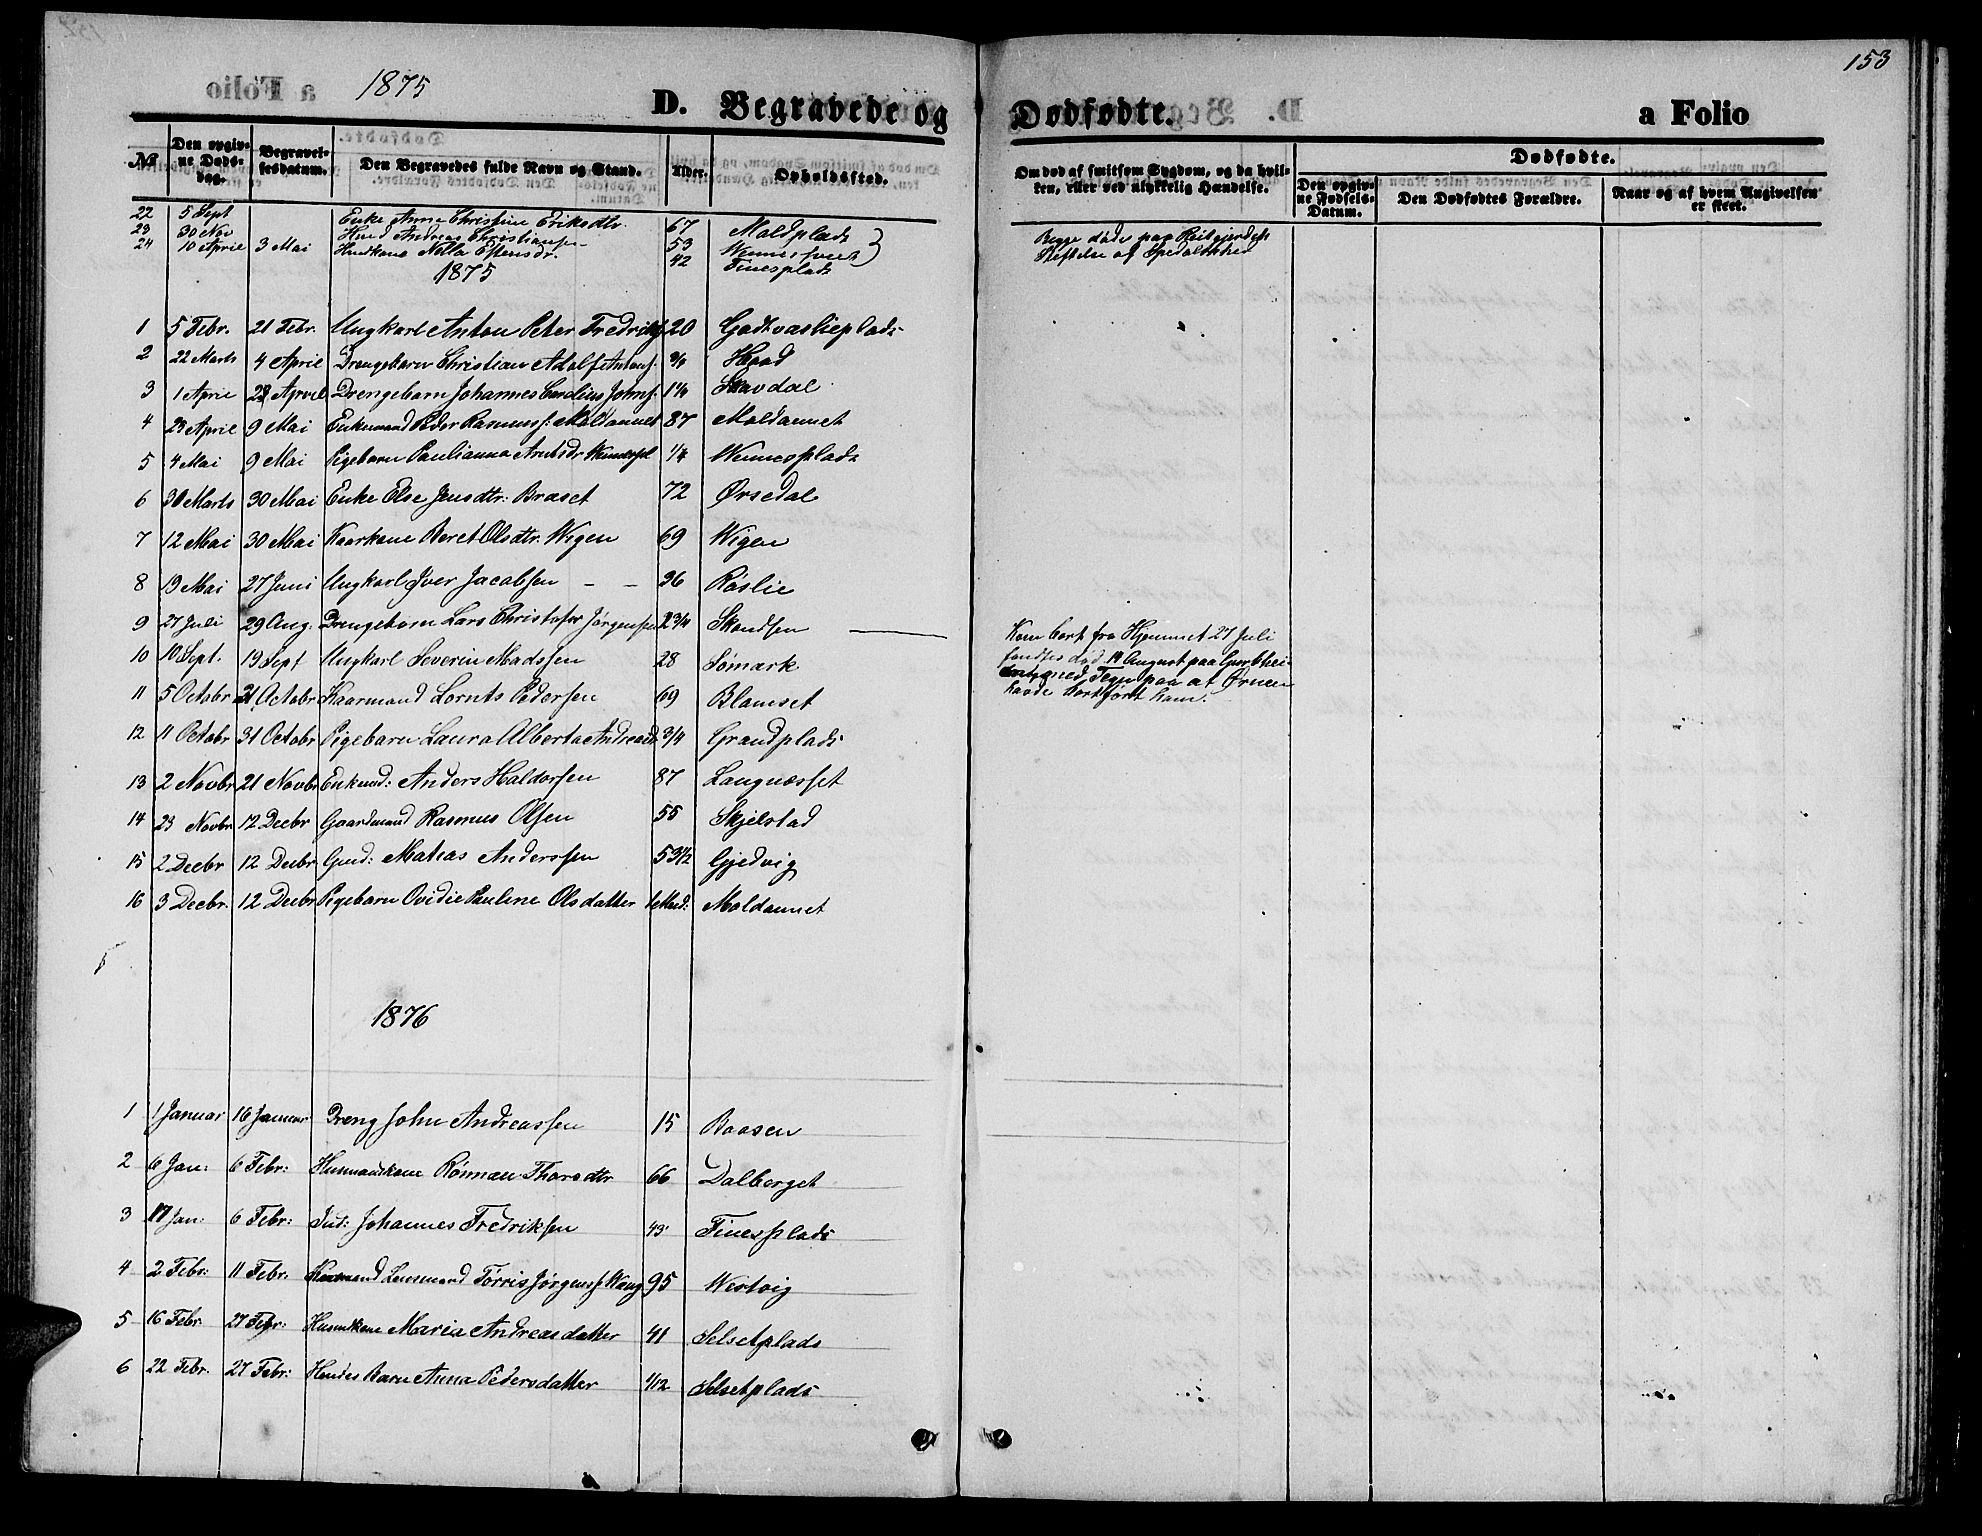 153
1875
D. Begravede og Dødfødte.
a Folio
No
Den opgivne Dødsdag.
Begravelsesdatum.
Den Begravedes fulde Navn og Stand.
Alder.
Opholdssted.
Om død af smitsom Sygdom, og da hvilken, eller ved ulykkelig Hændelse.
Dødfødte.
Den opgivne Fødsels-Datum.
Den Dødfødtes Forældre.
Naar og af hvem Angivelsen er skeet.
22 5 Sept Enke Anne Christine Eriksdtr. 67 Moldplads
23 30 Nov Husmd Andreas Christiansen 53
24 10 April 3 Mai Huskone 42 Finesplads
Begge døde paa Reitgjerdets Stiftelse af Spedalskhed
1875
1 5 Febr. 21 Febr. Ungkarl Anton Peter Fredriks. 20
2 22 Marts 4 April Drengebarn Christian Adolf Antons. 3/4
3 1 April 28 April Drengebarn Johannes Johns. 1 1/4 Skavdal
4 23 April 9 Mai Enkemand Peder Rasmuss: Moldannet 87 Moldannet
5 4 Mai 9 Mai Pigebarn Paulianna 1/4 Wennesplads
6 30 Marts 30 Mai Enke Else Jensdtr: Braset 72 Ørsedal
7 12 Mai 30 Mai Kaarkone Beret Olsdtr. Wigen 69 Wigen
8 19 Mai 27 Juni Ungkarl Iver Jacobsen - - 36 Røslie
9 27 Juli 29 Aug: Drengebarn Lars Christofer Jørgensen 2 3/4 Skandsen
Kom bort fra Hjemmet 27 Juli
fandtes død 14 August paa
med Tegn paa at Ørnen
havde bortført ham.
10 10 Sept. 19 Sept Ungkarl Severin Madssen 28 Sømark
11 5 Octobr 31 Octobr Kaarmand Lornts Pedersen 69 Blamset
12 11 Octobr 31 Octobr Pigebarn Laura Alberta Andreasd 3/4 Grandplads
13 2 Novbr 21 Novbr Enkmd: Anders Haldorsen 87 Langnæsset
14 23 Novbr 12 Decbr Gaardmand Rasmus Olsen 55 Skjelstad
15 2 Decbr 12 Decbr Gmd: Matias Anderssen 53 1/2 Gjedvig
16 3 Decbr. 12 Decbr Pigebarn Ovidie Pauline Olsdatter 1 Mnd: Moldannet
1876
1 1 Januar 16 Januar Dreng John Andreassen 15 Baasen
2 6 Jan: 6 Febr: Husmandskone Rønnau Thorsdtr 66 Dalberget
3 17 Jan: 6 Febr: Ind: Johannes Fredriksen 43 Finesplads
4 2 Febr: 11 Febr. Lensmand Tørris Jørgens. Wang 95 Westvig
5 16 Febr. 27 Febr: Husmkone Maria Andreasdatter 41 Selsetplads
6 22 Febr. 27 Febr: Hendes Barn Anna Pedersdatter 1/12 Selsetplads